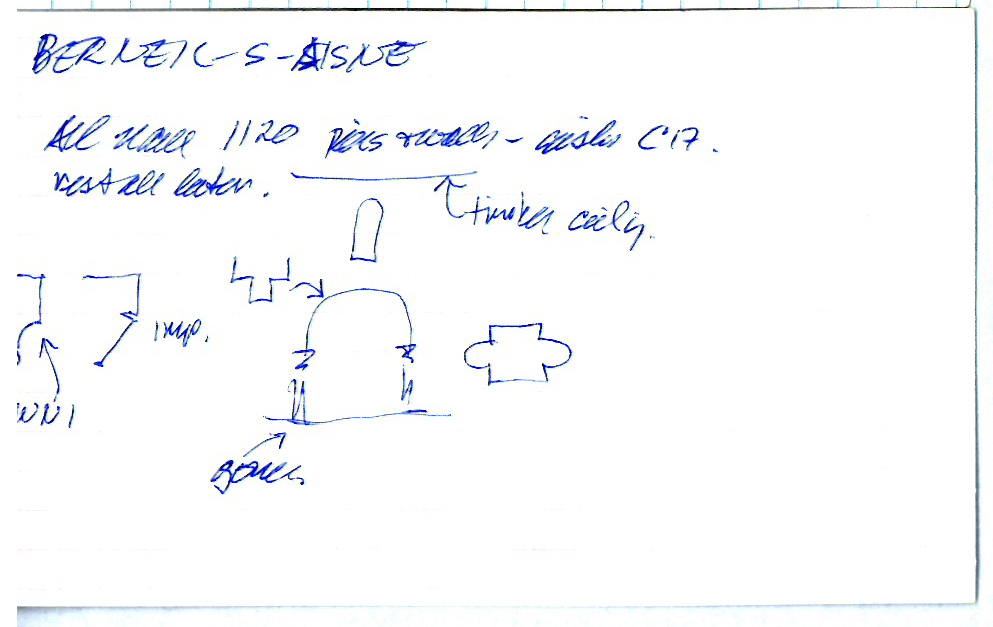 BERNEIL-S-AISNE
All nave 1120 piers & walls - aisles C17.
rest all later.
timber ceiling.
imp.
WN1